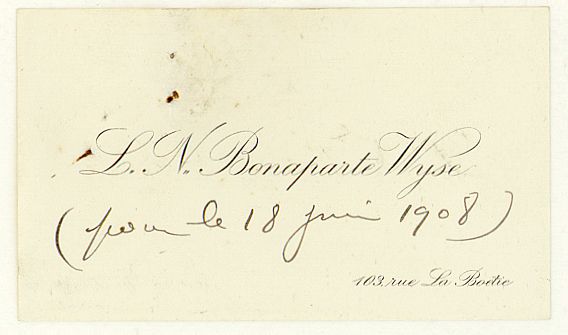 L. N. Bonaparte Wyse
(pour le 18 juin 1908)
103, rue La Boëtie